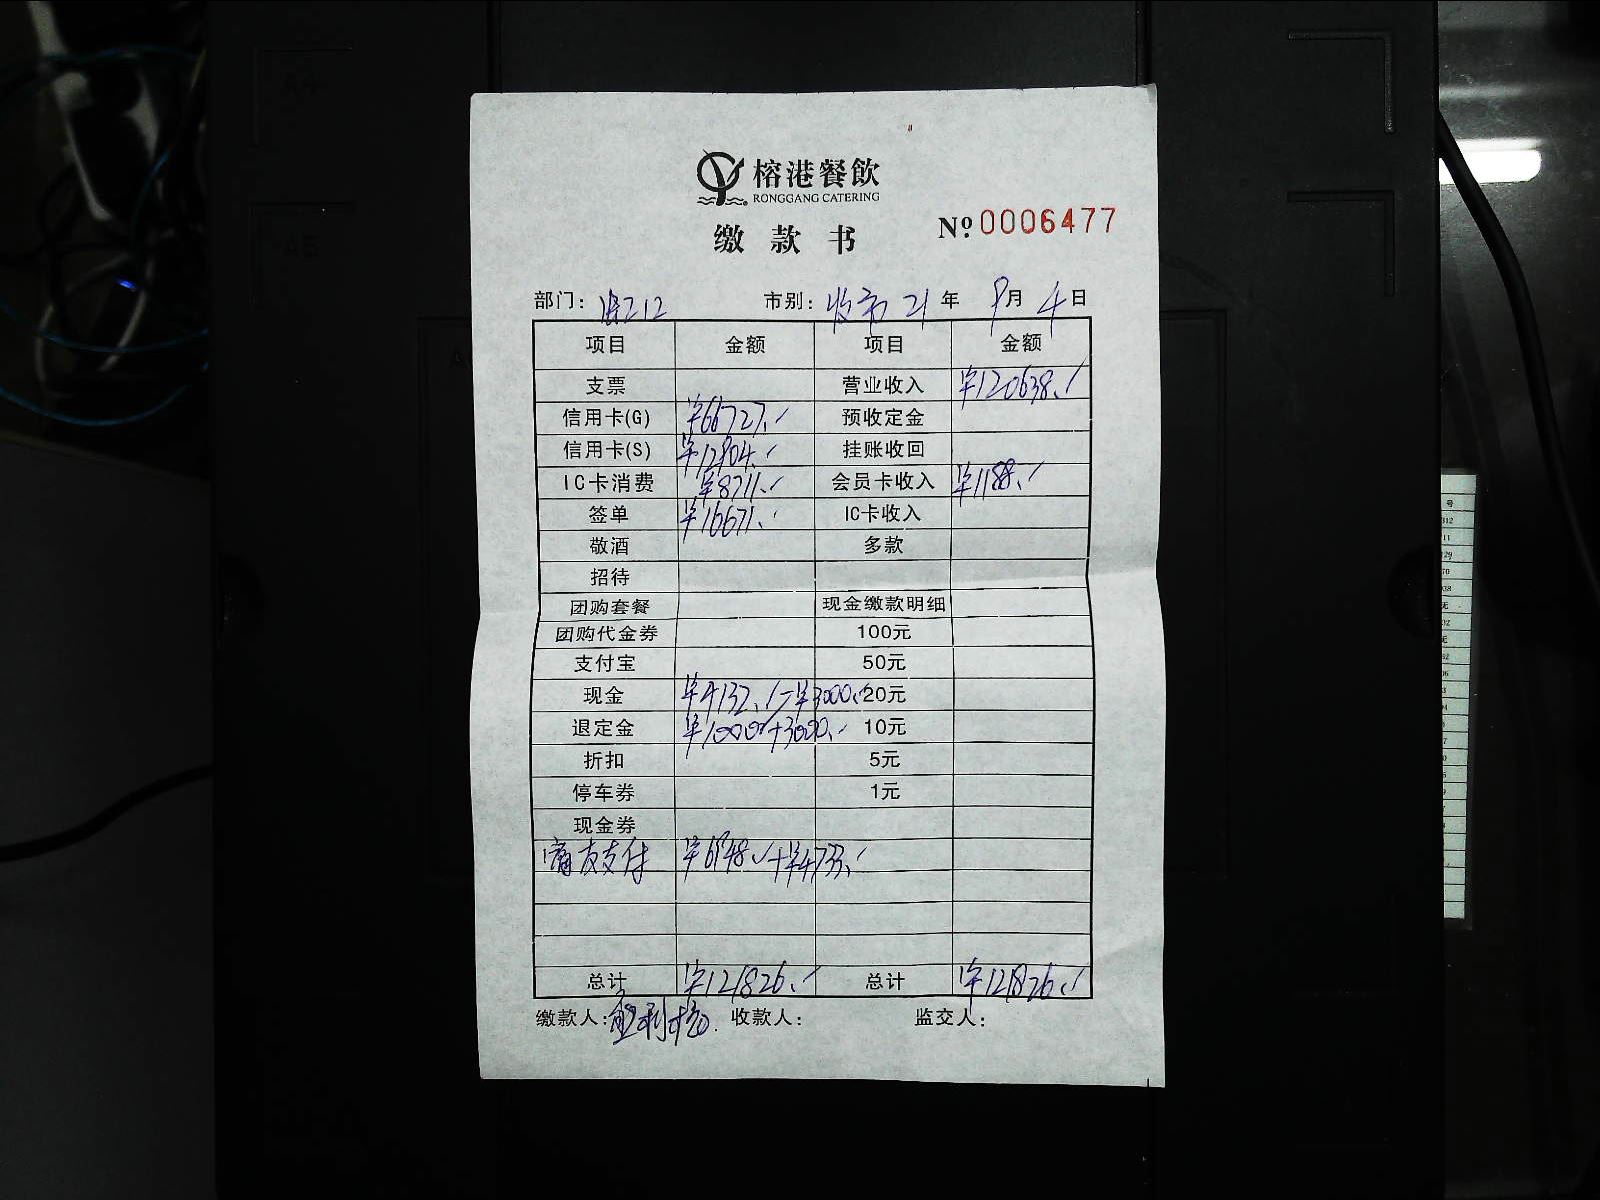 榕港餐飲
RONGGANG CATERING
缴款书
Nº 0006477
部门： 市别：收市 21年 9月 4日
项目 金额 项目 金额
支票 营业收入 ¥120638.
信用卡(G) ¥66727. 预收定金
信用卡(S) ¥12904. 挂账收回
IC卡消费 ¥8711. 会员卡收入 ¥1188.
签单 ¥16671. IC卡收入
敬酒 多款
招待
团购套餐 现金缴款明细
团购代金券 100元
支付宝 50元
现金 ¥4132.-¥3000. 20元
退定金 ¥1000+3000. 10元
折扣 5元
停车券 1元
现金券
支付 ¥6948.+¥4733.
总计 ¥121826. 总计 ¥121826.
缴款人： 收款人： 监交人：
A4
A5